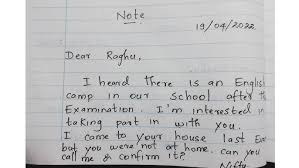 Note
19/04/2022.
Dear Raghu,
I heard there is an English
camp in our school after the
Examination. I'm interested in
taking part in with you.
I came to your house last
but you were not at home. can you
call me & confirm it?